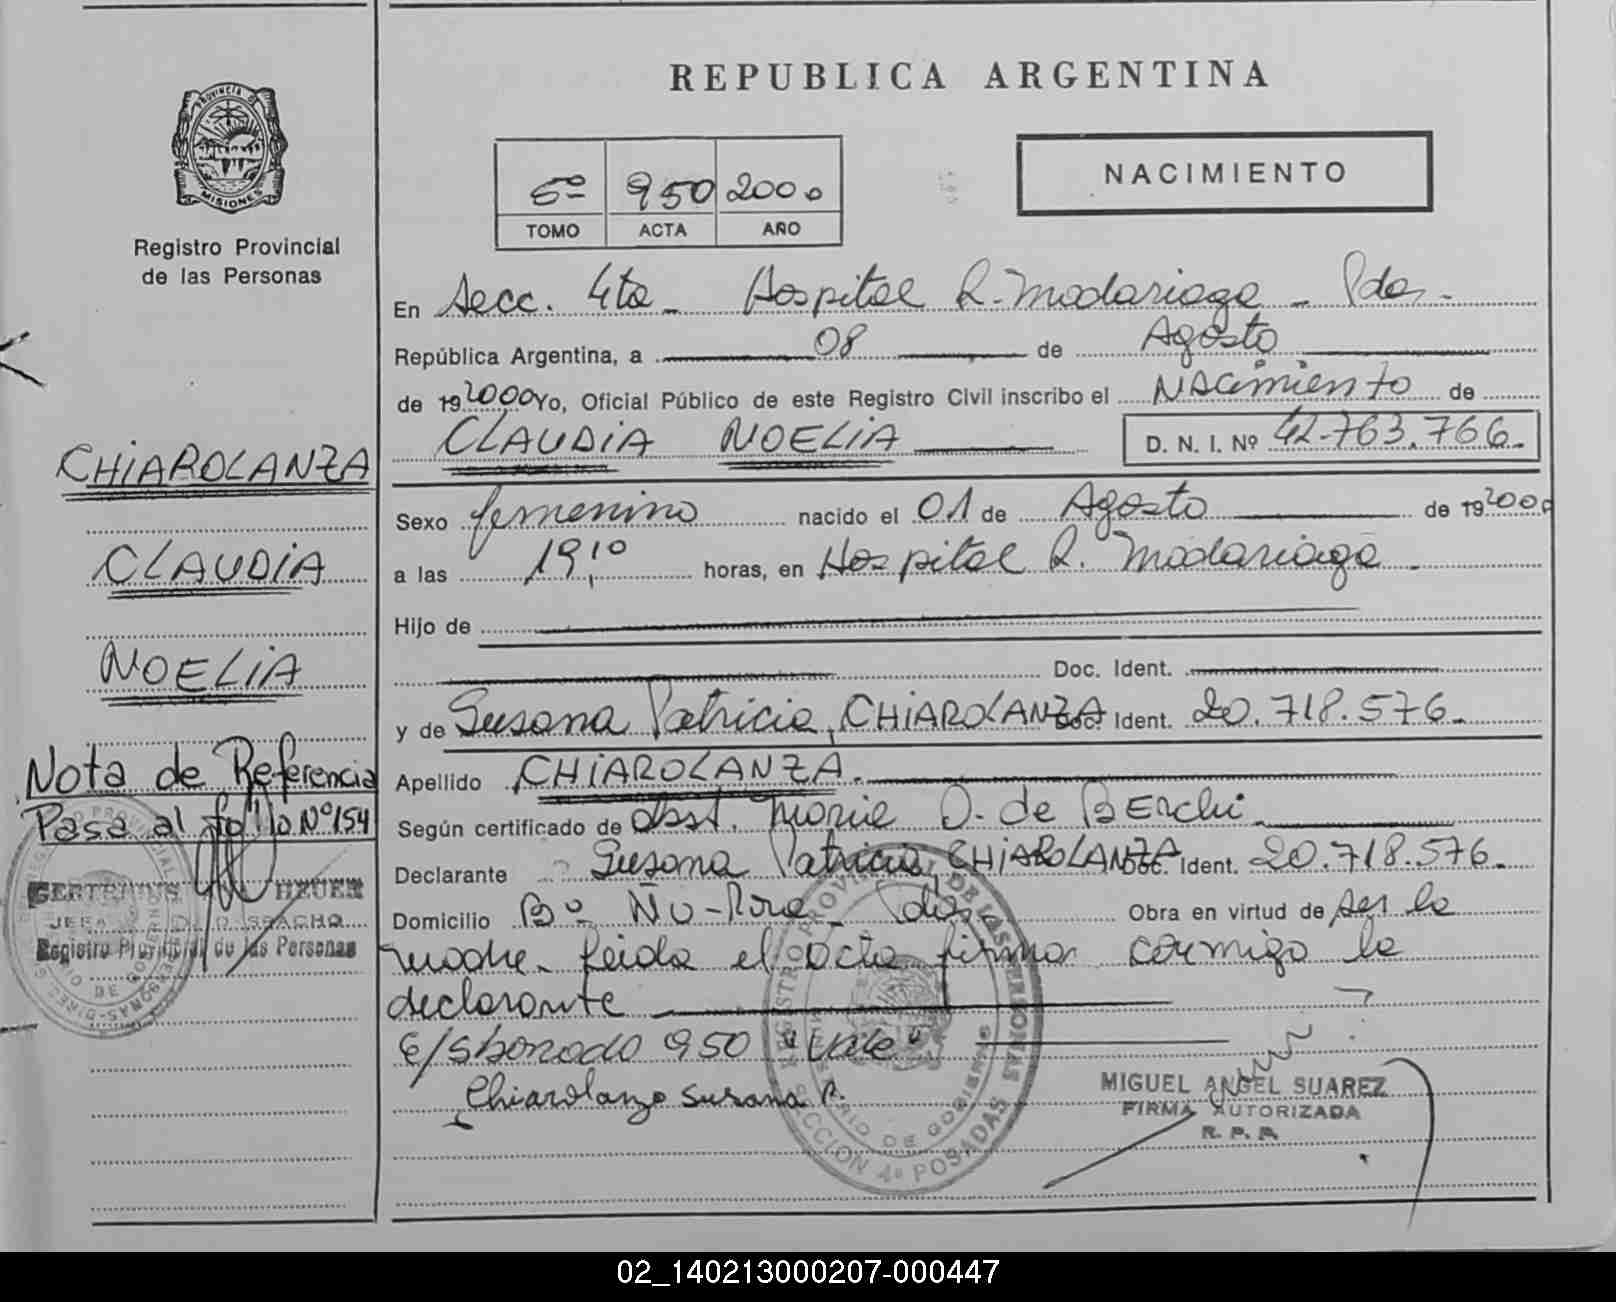 REPUBLICA ARGENTINA
PROVINCIA DE
MISIONES
Registro Provincial
de las Personas
5º 950 2000
TOMO ACTA AÑO
NACIMIENTO
En Secc. 4ta - Hospital R. Madariaga - Pdas.
República Argentina, a 08 de Agosto
de 192000 Yo, Oficial Público de este Registro Civil inscribo el Nacimiento de
CLAUDIA NOELIA D. N. I. Nº 42.763.766.
CHIAROLANZA
CLAUDIA
NOELIA
Sexo femenino nacido el 01 de Agosto de 192000
a las 19,10 horas, en Hospital R. Madariaga.
Hijo de
Doc. Ident.
y de Susana Patricia, CHIAROLANZA Doc. Ident. 20.718.576.
Apellido CHIAROLANZA.
Según certificado de Obst. Maria O. de BERchi
Declarante Susana Patricia, CHIAROLANZA Doc. Ident. 20.718.576.
Domicilio Bº Ñu-Pora - Pdas. Obra en virtud de ser la
madre. Leida el acta firma conmigo la
declarante
E/sbonado 950 "Vale"
Chiarolanza Susana P.
Nota de Referencia
Pasa al folio Nº 154
GERTRUDIS HEUER
JEFA DESPACHO
Registro Provincial de las Personas
REGISTRO PROVINCIAL DE LAS PERSONAS
MINISTERIO DE GOBIERNO
SECCION 4ª POSADAS
MIGUEL ANGEL SUAREZ
FIRMA AUTORIZADA
R. P. P.
02_140213000207-000447